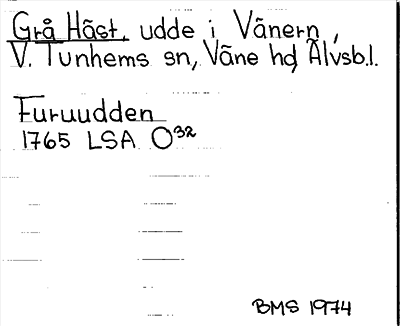 Grå Häst, udde i Vänern,
V. Tunhems sn, Väne hd, Älvsb.l.
Furuudden
1765 LSA O³²
BMS 1974